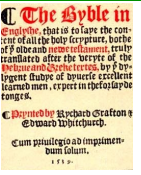 ¶ The Byble in
Englyshe, that is to saye the con-
tent of all the holy scrypture, bothe
of yͤ olde and newe testament, truly
translated after the veryte of the
Hebrue and Greke textes, by yͤ dy-
lygent studye of dyuerse excellent
learned men, expert in theforsayde
tonges.
¶ Prynted by Rychard Grafton &
Edward Whitchurch.
Cum priuilegio ad imprimen-
dum solum.
1539.